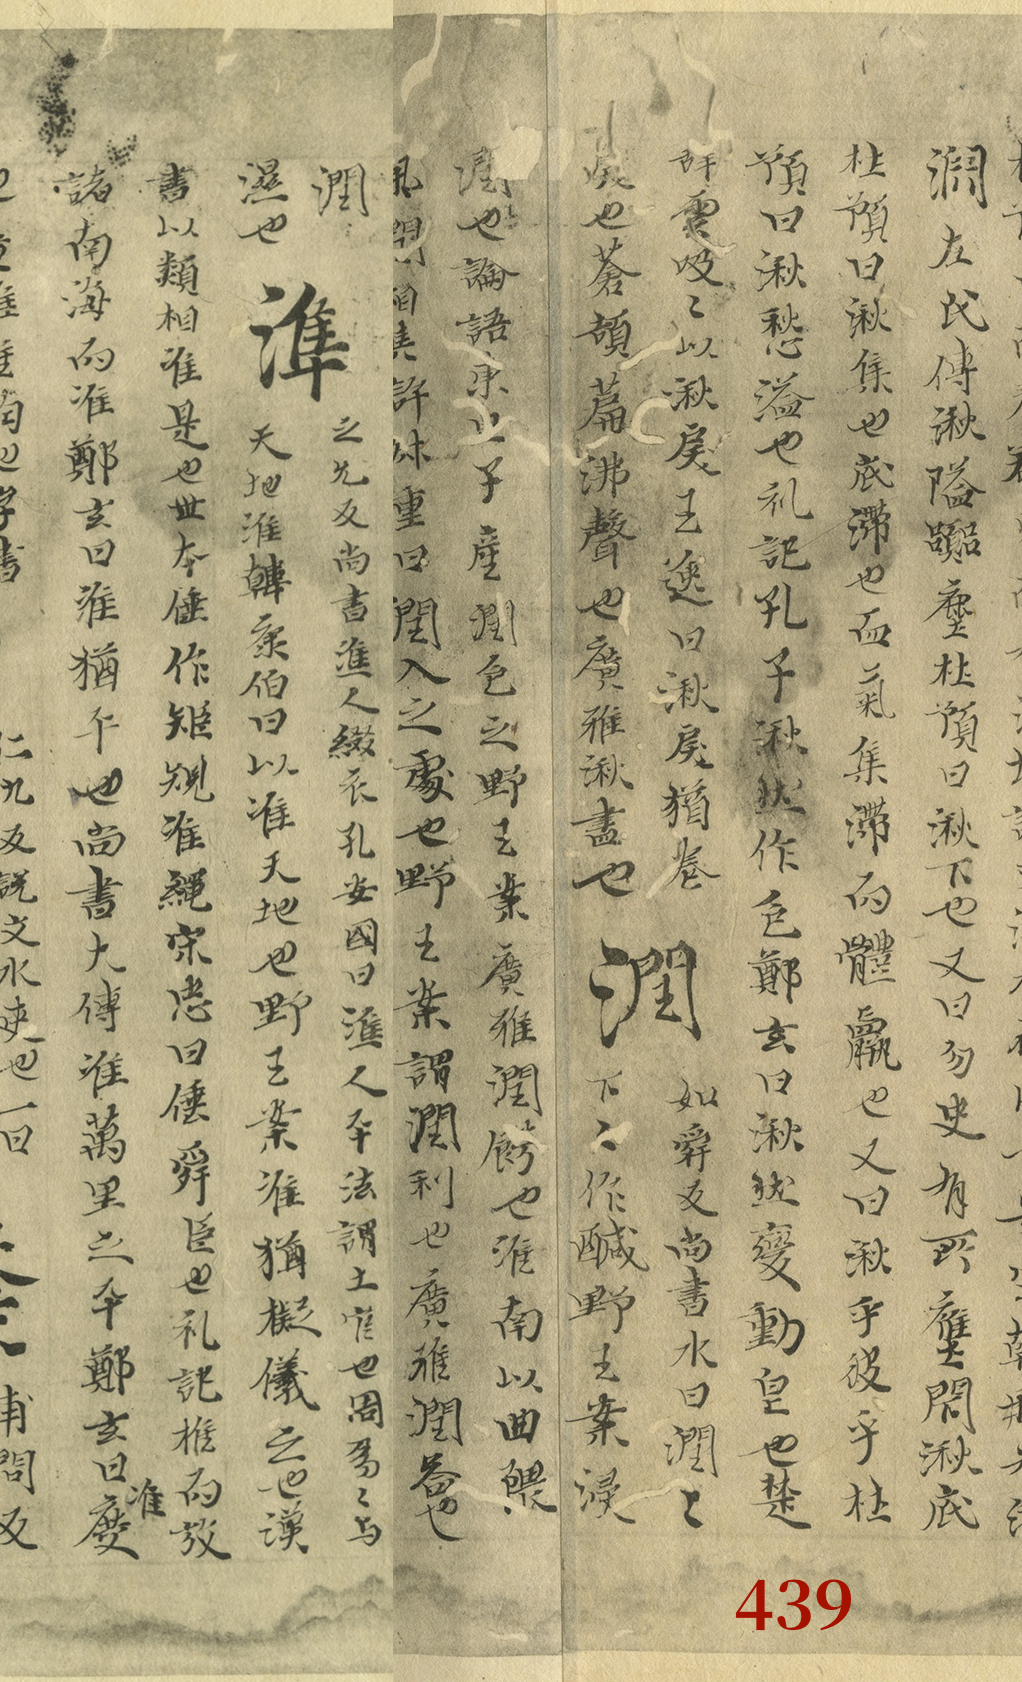 澗左氏傳湫隘躢塵杜預曰湫下也又曰勿史有所壅閇湫底
杜預曰湫集也底滯也血氣集滯而體羸也又曰湫乎彼乎杜
預曰湫愁溢也礼記孔子湫然作色鄭玄曰湫然變動皃也楚
辞雲吸〻以湫戾王逸曰湫戾猶卷
戾也蒼頡篇沸聲也廣雅湫盡也
潤
如舜反尚書水曰潤〻
下〻作鹹野王案浸
潤也論語東里子產潤色之野王案廣雅潤餝也淮南以曲隈
相許妹重曰潤入之處也野王案謂潤利也廣雅潤益也
潤
濕也
準
之允反尚書準人綴衣孔安國曰準人平法謂士官也周易〻与
天地准韓康伯曰以准天地也野王案准猶擬儀之也漢
書以類相准是也世本倕作矩規准繩宋忠曰倕舜臣也礼記推而放
諸南海而准鄭玄曰准猶平也尚書大傳准萬里之平鄭玄曰度
准
仁九反說文水也一曰
439